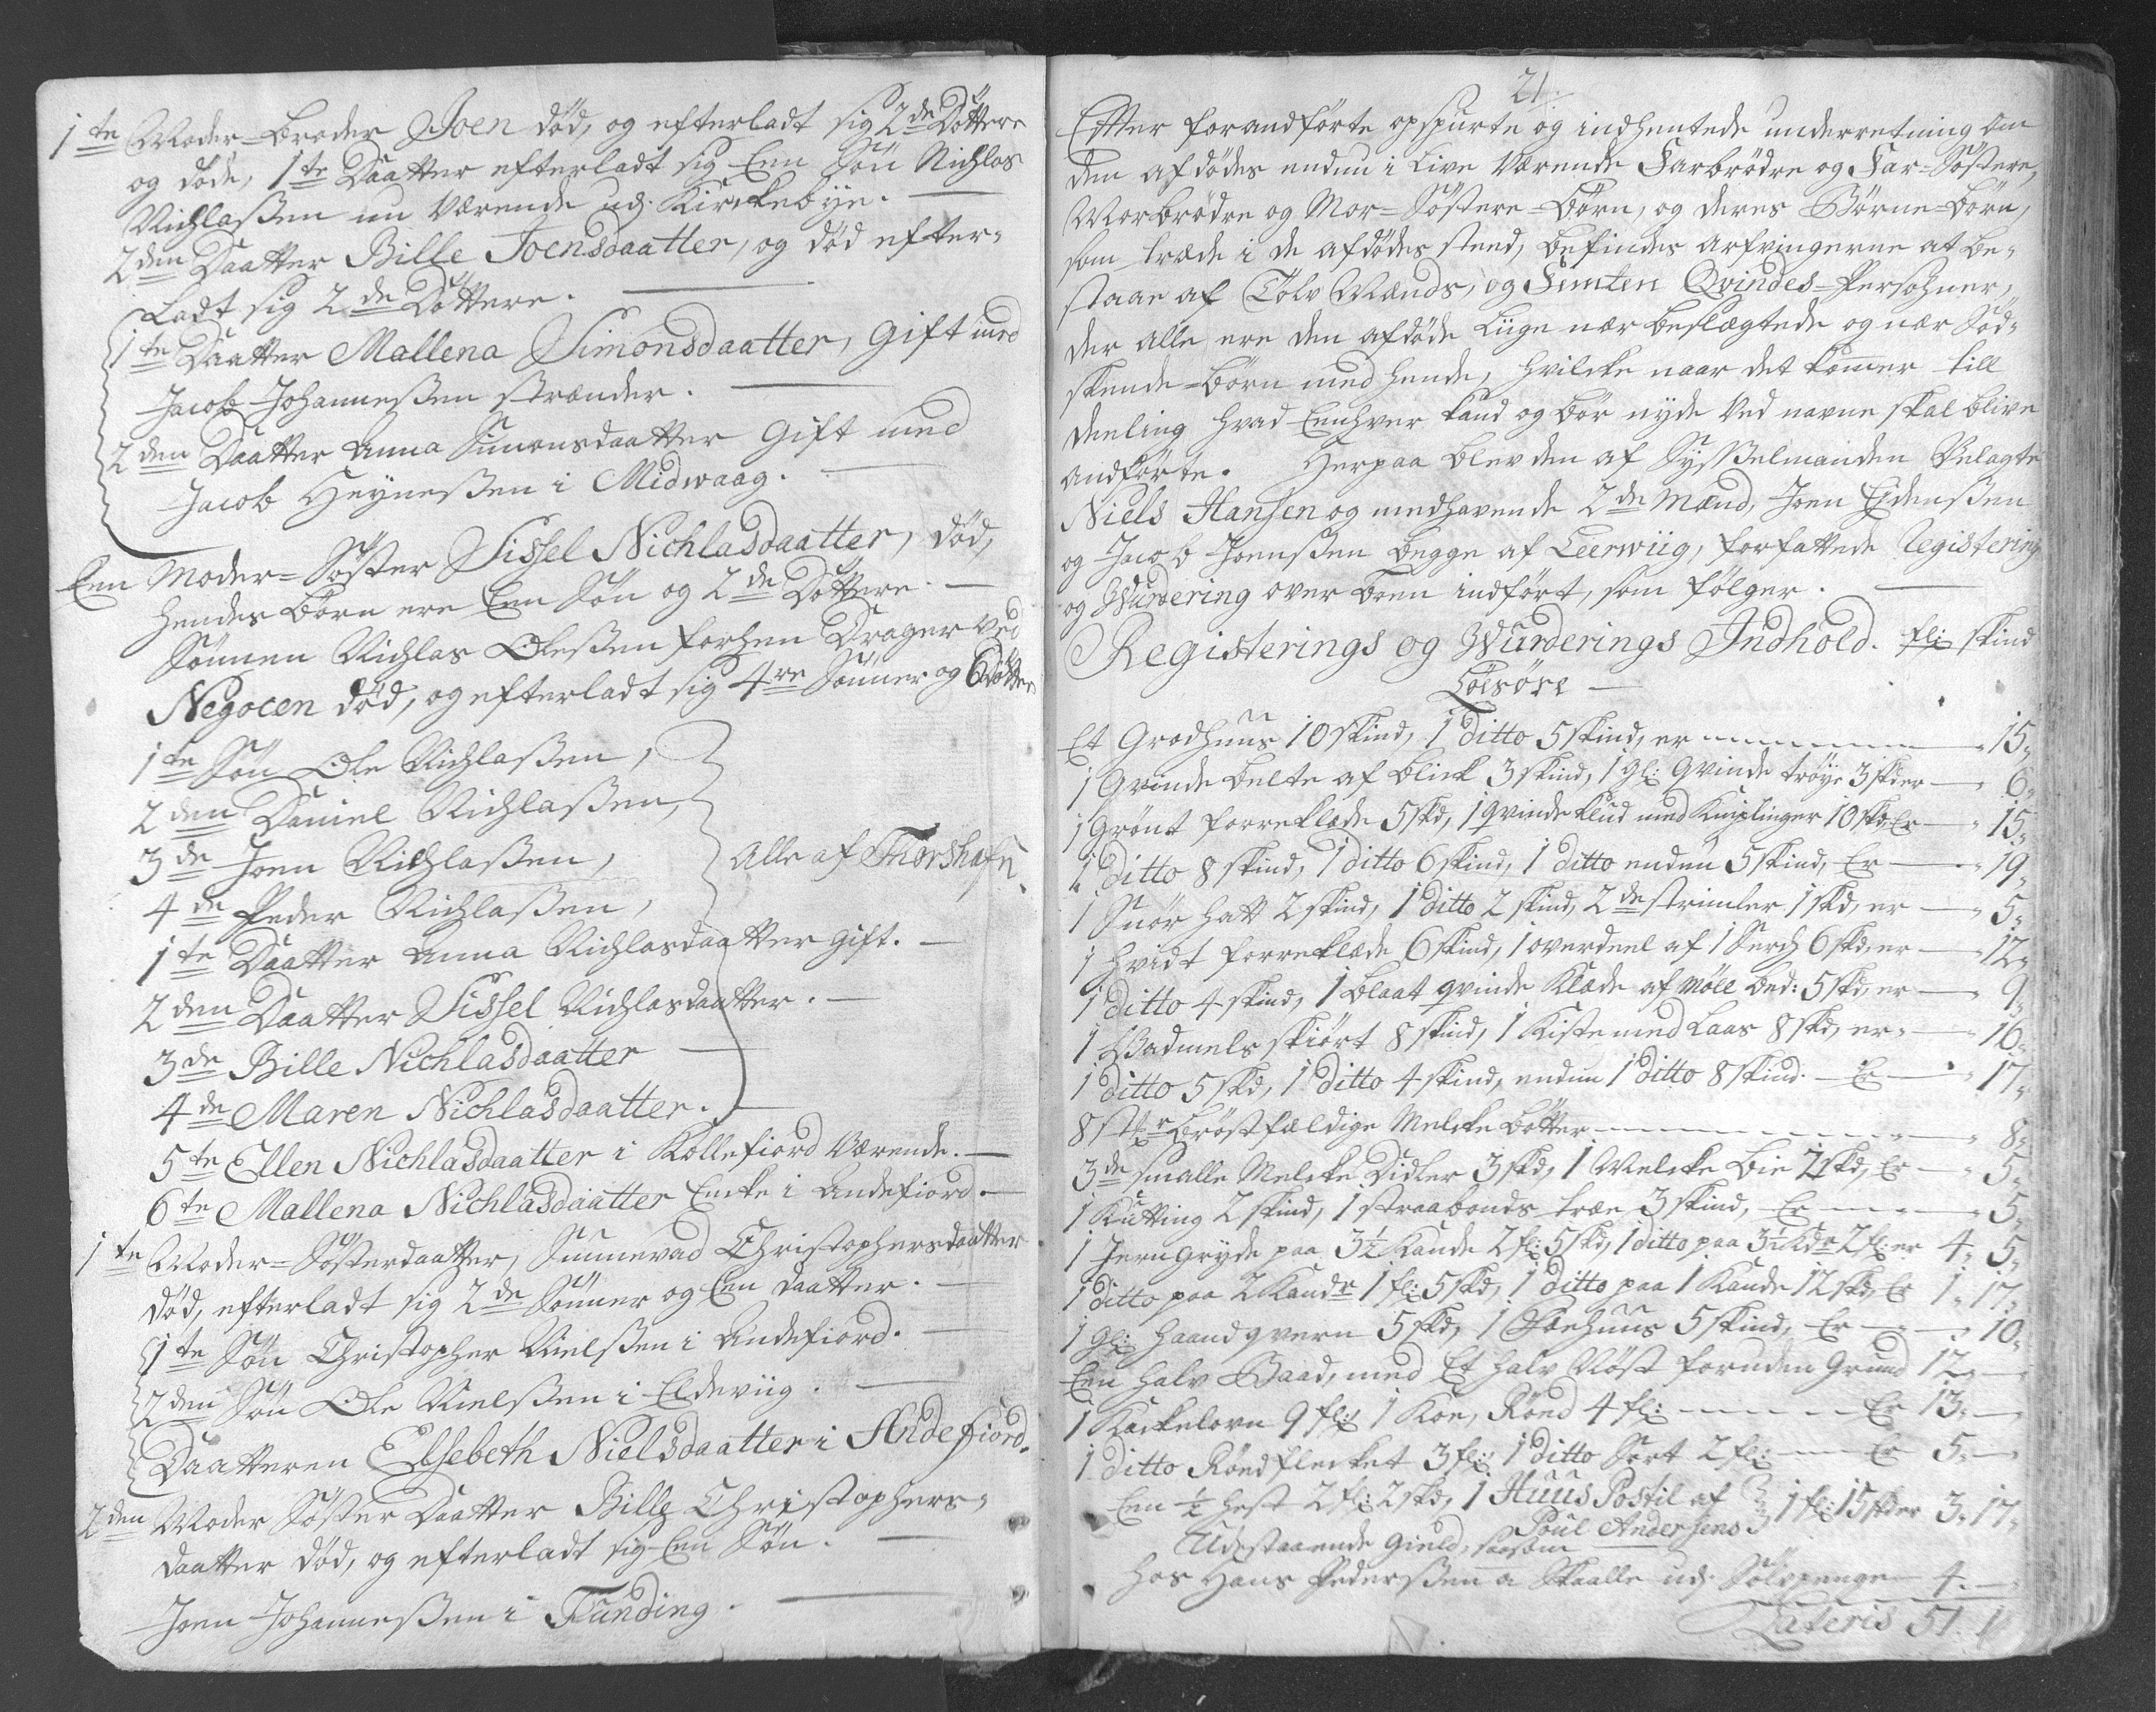 1te Moder-Broder Joen død, og efterladt sig 2de Døttere
og døde, 1te Daatter efterladt sig Een Søn Nichlas
Nichlaßen nu Værende udj Kirckebÿe.
2den Daatter Bille Joensdaatter, og død efter-
ladt sig 2de Døttere.
1te Daatter Mallena Simonsdaatter, Gift med
Jacob Johanneßen Strænder.
2den Daatter Anna Simonsdaatter Gift med
Jacob Heÿneßen i Midwaag.
Een Moder-Søster Sissel Nichlasdaatter, død,
hendes Børn ere Een Søn og 2de Døttere.
Sønnen Nichlas Oleßen forhen Drager ved
Negocen død, og efterladt sig 4re Sønner og 6 Døttre
1te Søn Ole Nichlaßen,
2den Daniel Nichlaßen,
3de Joen Nichlaßen,
Alle af Thorshafn.
4de Peder Nichlaßen,
1te Daatter Anna Nichlasdaatter gift.
2den Daatter Sissel Nichlasdaatter.
3de Bille Nichlasdaatter
4de Maren Nichlasdaatter.
5te Ellen Nichlasdaatter i Kollefiord Værende.
6te Mallena Nichlasdaatter Encke i Andefiord.
1te Moder-Søsterdaatter, Sunnevad Christophersdaatter
død, efterladt sig 2de Sønner og Een Daatter.
1te Søn Christopher Nielßen i Andefiord.
2den Søn Ole Nielßen i Eldeviig.
Daatteren Elsebeth Nielsdaatter i Andefiord.
2den Moder Søster Daatter Bille Christophers-
daatter død, og efterladt sig Een Søn.
Joen Johanneßen i Funding.
21.
Efter forandførte opspurte og indhentede underretning om
den afdødes endnu i Live Værende Farbrødre og Far-Søstere,
Morbrødre og Mor-Søstere-Børn, og deres Børne-Børn,
som træde i de afdødes sted, befindes Arfvingerne at be-
staae af Tolv Mænds, og Femten Qvindes-Persohner,
der alle ere den afdøde Liige nær beslægtede og nær Sød-
skende-Børn med hende, hvilcke naar det kommer till
deeling hvad Eenhver kand og bør nÿde Ved navne skal blive
andførte. Herpaa blev den af Sÿsselmanden Velagte
Niels Hansen og medhavende 2de Mænd, Joen Eidenßen
og Jacob Joenßen begge af Leerwiig, forfattede Registering
og Wurdering over Boen indført, som følger.
Registerings og Wurderings Indhold. fl: skind
Løesøre
Et Grodhuus 10 skind, 1 ditto 5 skind, er 15,,
1 Qvinde belte af blick 3 skind, 1 gl: Qvinde trøÿe 3 skd er 6,,
1 Grønt forreklæde 5 skd, 1 Qvinde klud med Kniplinger 10 skd Er 15,,
1 ditto 8 skind, 1 ditto 6 skind, 1 ditto endnu 5 skind, Er 19,,
1 Snør hatt 2 skind, 1 ditto 2 skind, 2de strimler 1 skd, er 5,,
1 hvidt forreklæde 6 skind, 1 overdeel af 1 Serch 6 skd, er 12,,
1 ditto 4 skind, 1 blaat qvinde Klæde af Møll bed: 5 skd, er 9,,
1 Wadmels skiørt 8 skind, 1 Kiste med Laas 8 skd, er 16,,
1 ditto 5 skd, 1 ditto 4 skind, endnu 1 ditto 8 skind. Er 17,,
8 stkr Brøstfældige Melcke bøtter 8,,
3de smalle Melcke Didler 3 skd, 1 Melcke Bie 2 skd, Er 5,,
1 Kutting 2 skind, 1 straabonds træe 3 skind, Er 5,,
1 Jerngrÿde paa 3½ Kande 2 fl: 5 skd, 1 ditto paa 3½ Kdr 2 fl: er 4,, 5,,
1 ditto paa 2 Kandr 1 fl: 5 skd, 1 ditto paa 1 Kande 12 skd, Er 1,, 17,,
1 gl: haandqvern 5 skd, 1 Søehuus 5 skind, Er 10,,
Een halv Baad, med Et halv Nøst foruden Grund 12,,
1 Kackelovn 9 fl: 1 Koe, Rønd 4 fl: Er 13,,
1 ditto Røndflecket 3 fl: 1 ditto Sort 2 fl: Er 5,,
Een ½ hest 2 fl: 2 skd, 1 Huus Postil af
Poul Andersens 1 fl: 15 skd er 3,, 17,,
Udestaaende Gield, saasom
hos Hans Pederßen a Skaalle udj Sølvpenge 4.
Lateris 51. 1